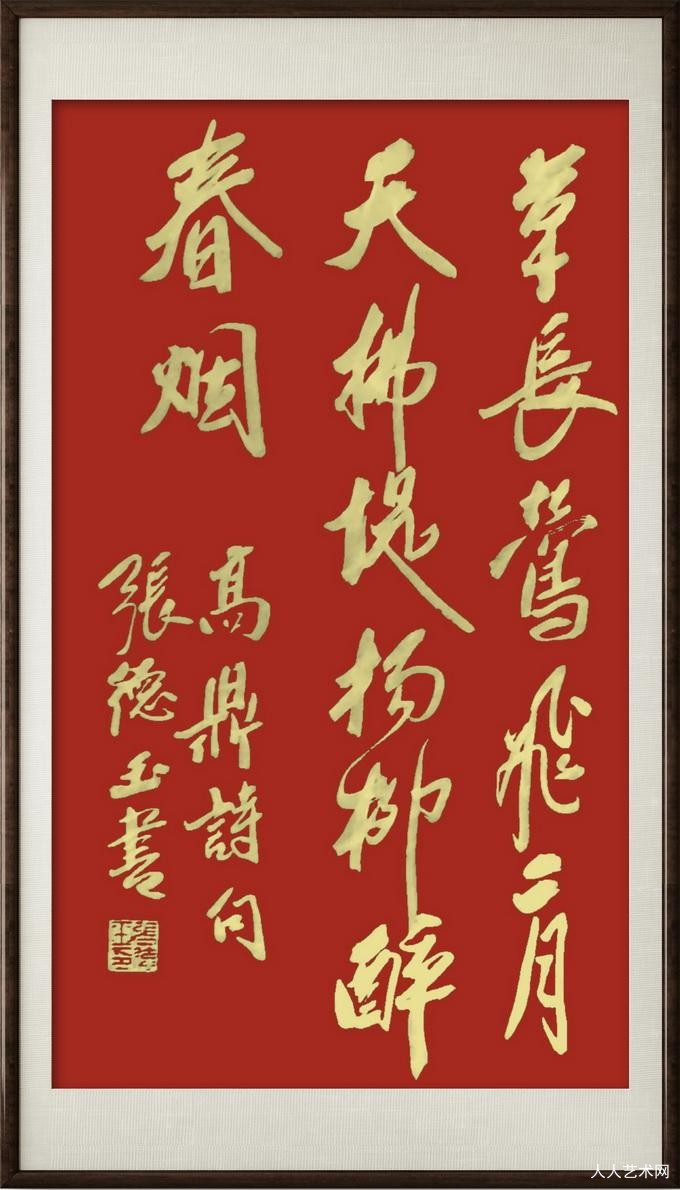 草長鶯飛二月
天拂堤楊柳醉
春烟
高鼎詩句
張德玉書
人人艺术网